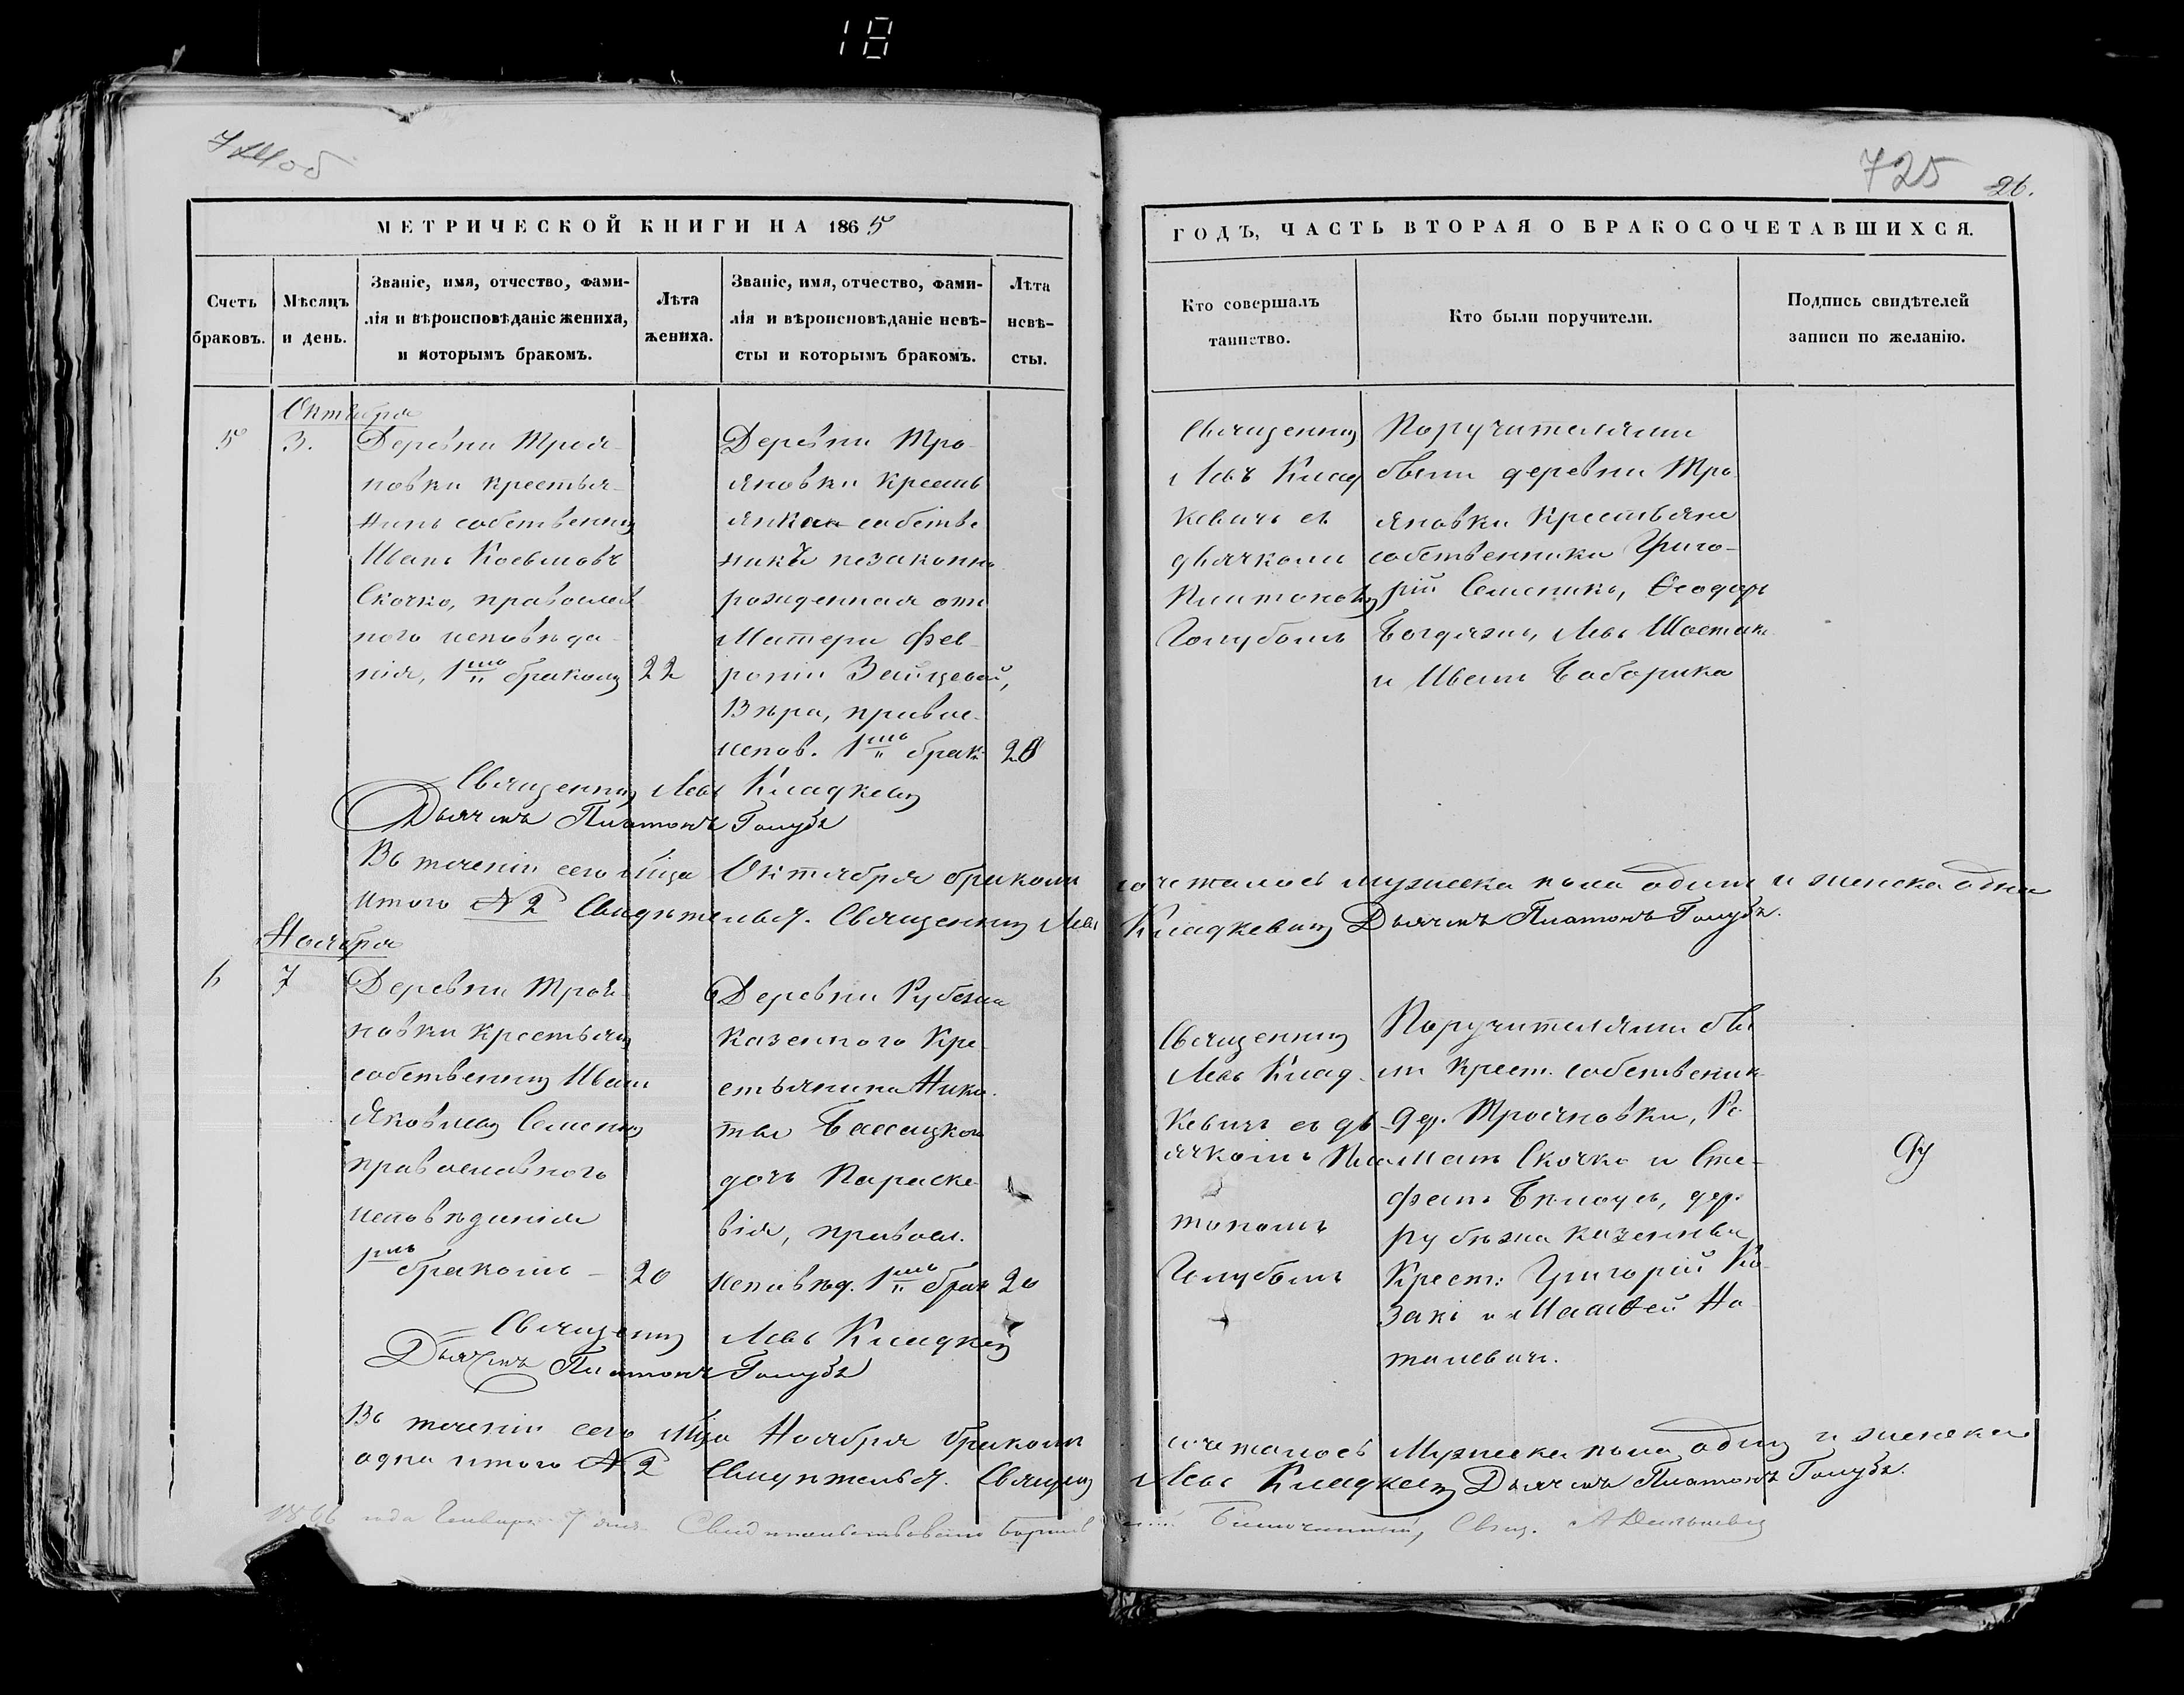 18
724 об
725
26.
МЕТРИЧЕСКОЙ КНИГИ НА 1865
ГОДЪ, ЧАСТЬ ВТОРАЯ О БРАКОСОЧЕТАВШИХСЯ.
Счетъ
браковъ.
Мѣсяцъ
и день.
Званіе, имя, отчество, фами-
лія и вѣроисповѣданіе жениха,
и которымъ бракомъ.
Лѣта
жениха.
Званіе, имя, отчество, фами-
лія и вѣроисповѣданіе невѣ-
сты и которымъ бракомъ.
Лѣта
невѣ-
сты.
Кто совершалъ
таинство.
Кто были поручители.
Подпись свидѣтелей
записи по желанію.
Октября
5
3.
Деревни Троя-
новки крестья-
нинъ собственник
Иванъ Косьмовъ
Скочко, православ
ного исповѣда-
нія, 1мъ бракомъ
22
Деревни Тро-
яновки кресть
янки собстве
ника незаконно
рожденная отъ
Матери Фев-
роніи Зайцевой,
Вѣра, правос.
испов. 1мъ брак.
20
Священник
Левъ Клад
кевичъ съ
дьячкомъ
Платоном
Голубомъ
Поручителями
были деревни Тро
яновки Крестьяне
собственники Григо-
рій Семенико, Ѳеодоръ
Богдязъ, Левъ Шостакъ
и Иванъ Баборика
Священник Левъ Кладкевич
Дьячекъ Платонъ Голубъ
Въ теченіи сего мѣсца Октября бракомъ сочеталось мужеска пола одинъ и женска одна
Итого № 2 Свидѣтельст. Священник Левъ Кладкевич Дьячекъ Платонъ Голубъ.
Ноября
6
7
Деревни Троя-
новки Крестьян
собственник Иван
Яковлев Семеник
православного
исповѣданія
1мъ бракомъ
20
Деревни Рубежа
казенного Кре-
стьянина Ники-
ты
дочь Параске-
вія, правосл.
исповѣд. 1мъ брак
20
Священник
Левъ Клад-
кевичъ съ дь-
ячкомъ Пла
тономъ
Голубомъ
Поручителями бы
ли Крест. собственник
дер. Трояновки, Ро
манъ Скочко и Сте-
фанъ Бѣлоусъ, дер.
рубѣжа казенные
Крест: Григорій Ко-
закъ и Матѳей На-
талевич.
Священник Левъ Кладкев
Дьячекъ Платонъ Голубъ
Въ теченіи сего мѣсца Ноября бракомъ сочеталось Мужеска пола один и женска
одна итого № 2 Свидѣтельст. Священ Левъ Кладкевич Дьячекъ Платонъ Голубъ.
1866 года Генваря 7 дня Свидѣтельствовалъ Благочинный, Свящ.